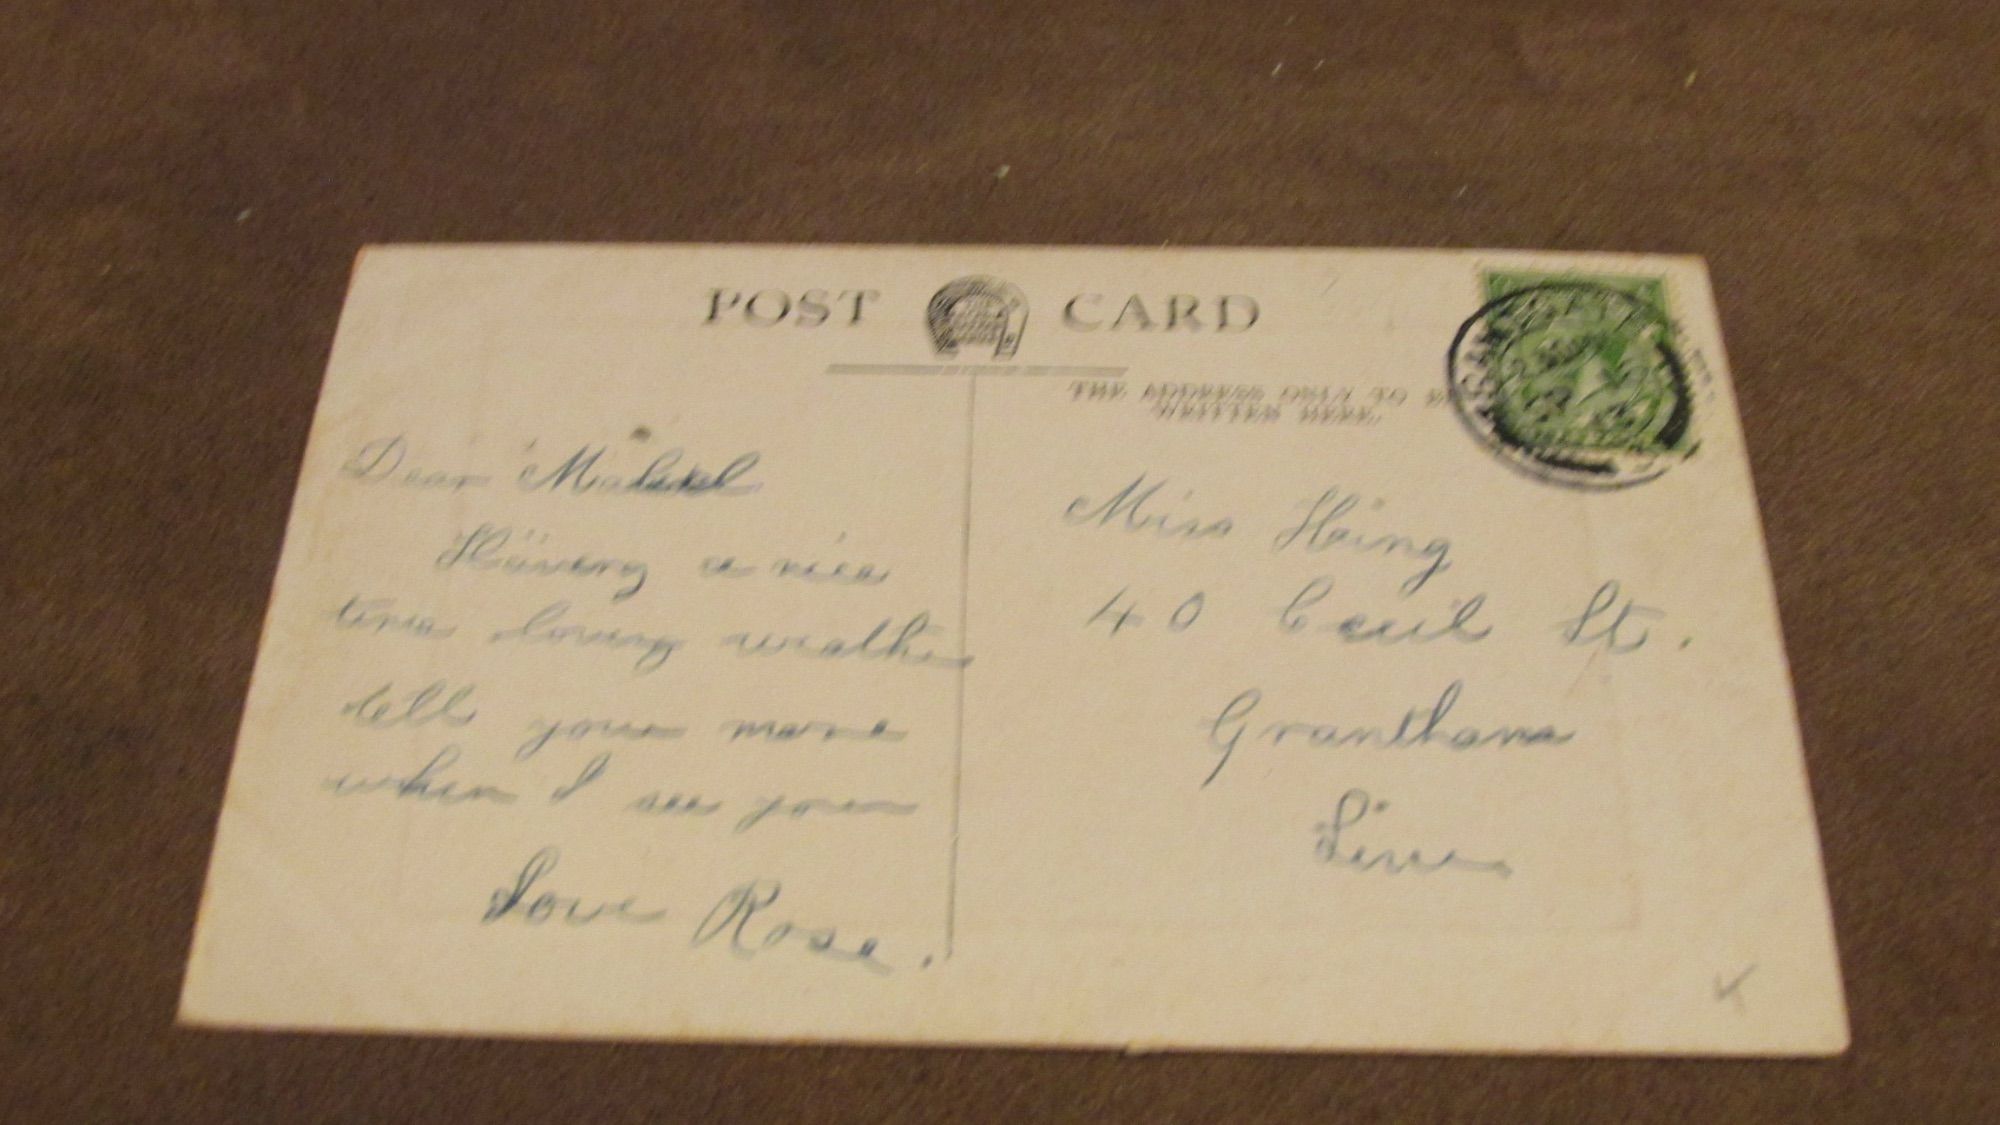 POST CARD
THE ADDRESS ONLY TO BE
WRITTEN HERE.
Dear Mabel
Having a nice
time loving weather
tell you more
when I see you
Love Rose.
Miss Hing
40 Cecil St.
Grantham
Linc